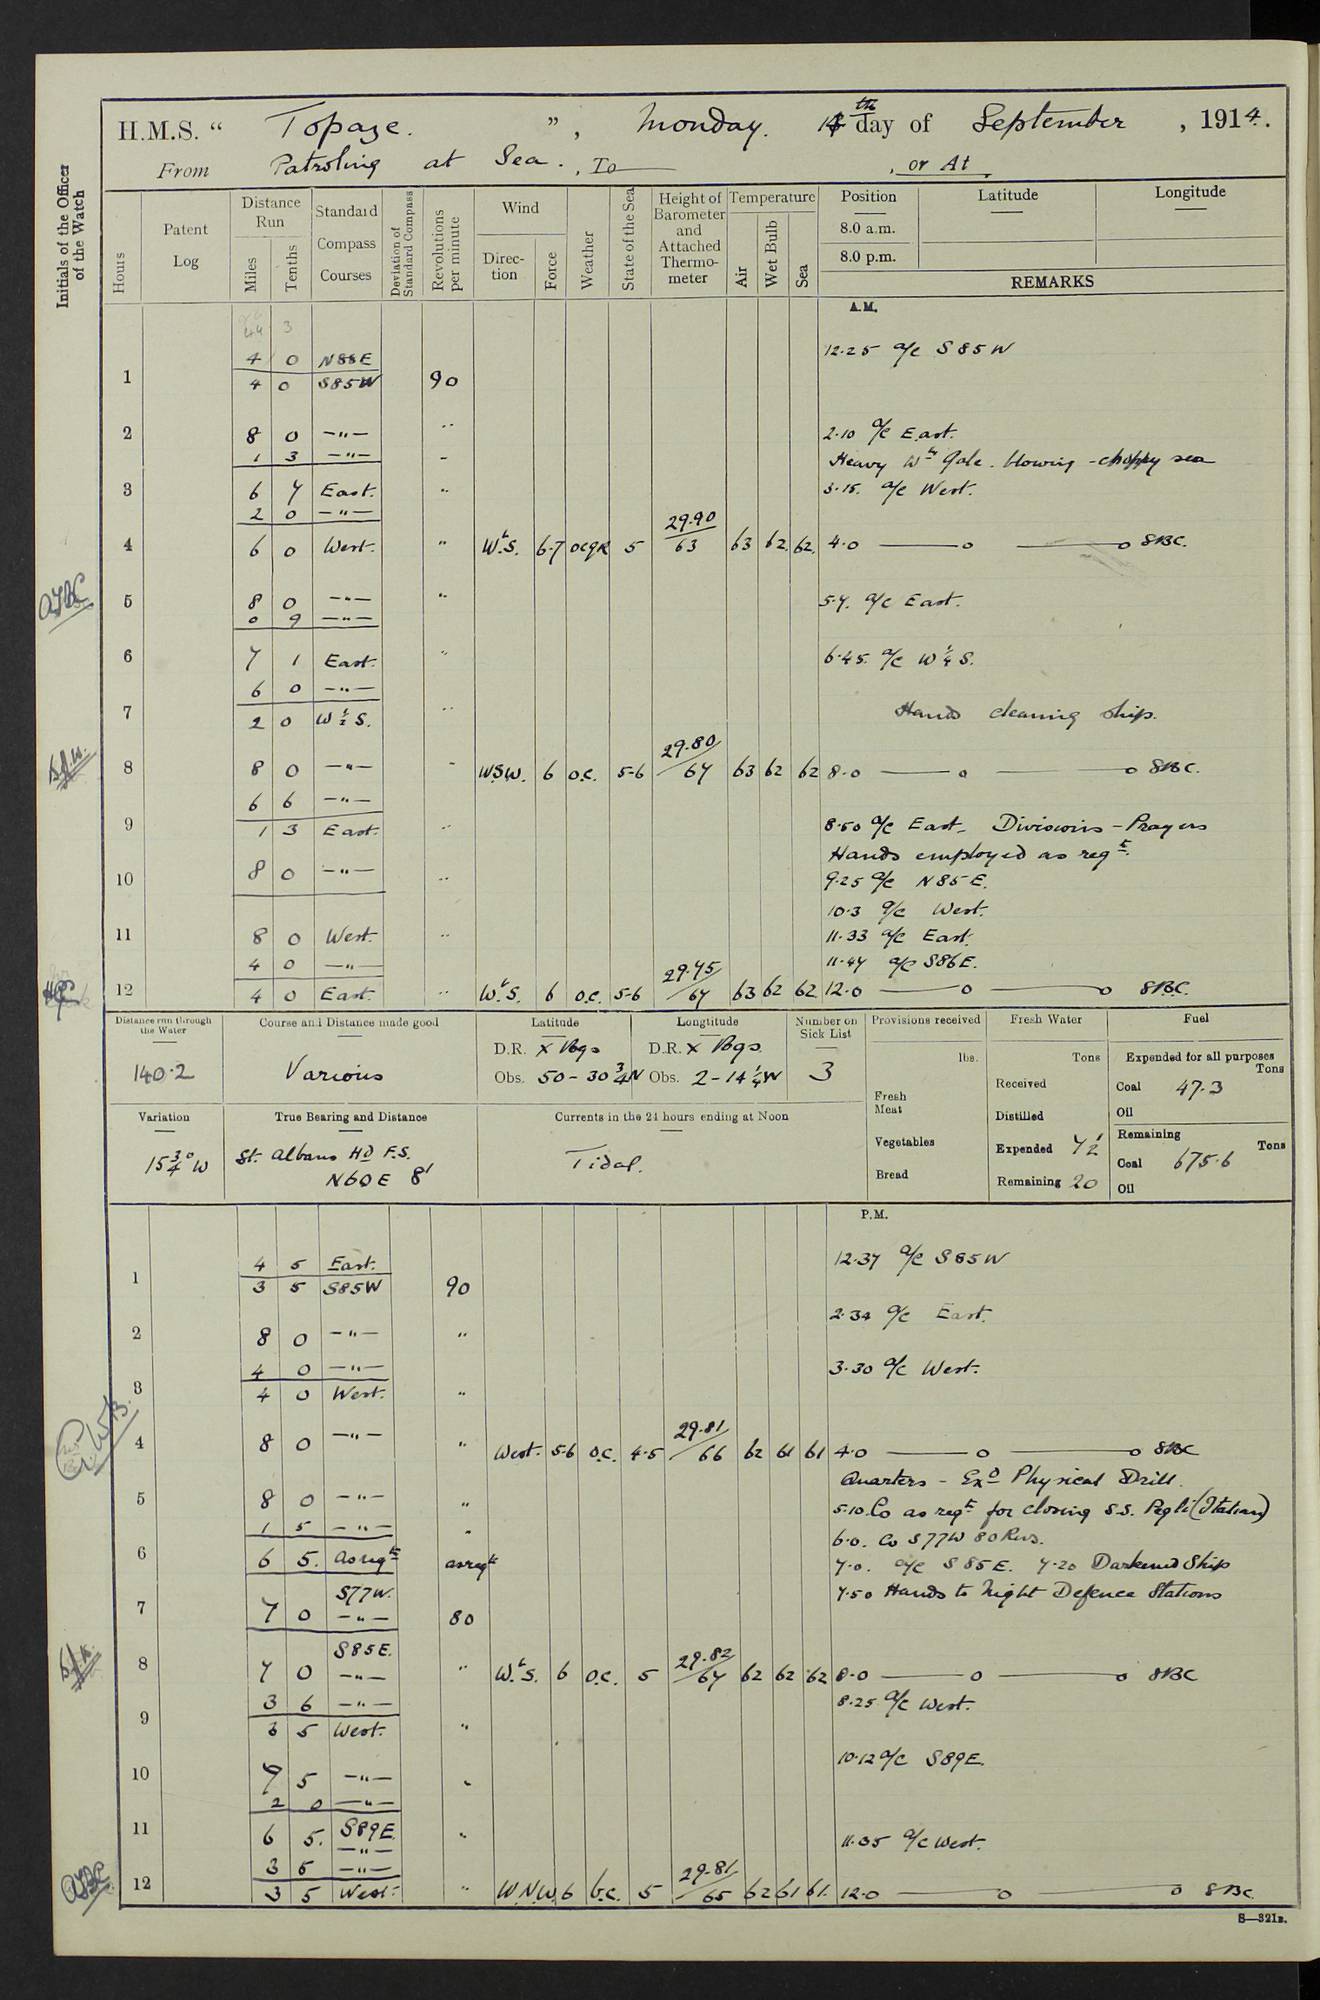 H.M.S. “ Topaze. ”, Monday. 14th day of September, 1914.
From Patroling at Sea., To , or At
Initials of the Officer of the Watch
Hours
Patent Log
Distance Run
Miles
Tenths
Standard Compass Courses
Deviation of Standard Compass
Revolutions per minute
Wind
Direction
Force
Weather
State of the Sea
Height of Barometer and Attached Thermometer
Temperature
Air
Wet Bulb
Sea
Position
8.0 a.m.
8.0 p.m.
Latitude
Longitude
REMARKS
A.M.
44 3
4 0 N88E 12.25 a/c S85W
1 4 0 S85W 90
2 8 0 —"— " 2.10 a/c East.
1 3 —"— " Heavy Wly Gale. blowing - choppy sea
3 6 7 East. " 3.15. a/c West.
2 0 —"—
4 6 0 West. " WbS. 6-7 ocqR 5 29.90/63 63 62 62 4.0 —o —o SBC.
5 8 0 —"— " 5.7. a/c East.
0 9 —"—
6 7 1 East. " 6.45. a/c W¼S.
6 0 —"—
7 2 0 W½S. " Hands cleaning ship.
8 8 0 —"— " WSW. 6 o.c. 5-6 29.80/67 63 62 62 8.0 —o —o SBC.
6 6 —"—
9 1 3 East. " 8.50 a/c East. Divisions - Prayers
Hands employed as reqd.
10 8 0 —"— " 9.25 a/c N85E.
10.3 a/c West.
11 8 0 West. " 11.33 a/c East.
4 0 —"— 11.47 a/c S86E.
12 4 0 East. " WbS. 6 o.c. 5-6 29.75/67 63 62 62 12.0 —o —o SBC.
Distance run through the Water
140.2
Course and Distance made good
Various
Latitude
D.R. X Bgs
Obs. 50-30¾N
Longtitude
D.R. X Bgs.
Obs. 2-14¼W
Number on Sick List
3
Provisions received
lbs.
Fresh Meat
Vegetables
Bread
Fresh Water
Tons
Received
Distilled
Expended 7½
Remaining 20
Fuel
Expended for all purposes
Tons
Coal 47.3
Oil
Remaining
Tons
Coal 675.6
Oil
Variation
15¾° W
True Bearing and Distance
St. Albans HD F.S.
N60E 8'
Currents in the 24 hours ending at Noon
Tidal.
P.M.
4 5 East. 12.37 a/c S85W
1 3 5 S85W 90
2.34 a/c East.
2 8 0 —"— "
4 0 —"— 3.30 a/c West.
3 4 0 West. "
4 8 0 —"— " West. 5-6 o.c. 4-5 29.81/66 62 61 61 4.0 —o —o SBC
Quarters - Exd Physical Drill.
5 8 0 —"— " 5.10. Co as reqte for closing S.S. Pegli (Italian)
1 5 —"— " 6.0. Co S77W 80 Revs.
6 6 5. As reqte as reqte 7.0. a/c S85E. 7.20 Darkened Ship
S77W. 7.50 Hands to Night Defence Stations
7 7 0 —"— 80
S85E.
8 7 0 —"— " WbS. 6 o.c. 5 29.82/67 62 62 62 8.0 —o —o SBC
3 6 —"— 8.25 a/c West.
9 3 5 West. "
10.12 a/c S89E.
10 7 5 —"— "
2 0 —"—
11 6 5. S89E. " 11.35 a/c West.
—"—
3 5 —"—
12 3 5 West. " W.N.W. 6 b.c. 5 29.81/65 62 61 61. 12.0 —o —o SBC.
S—321B.